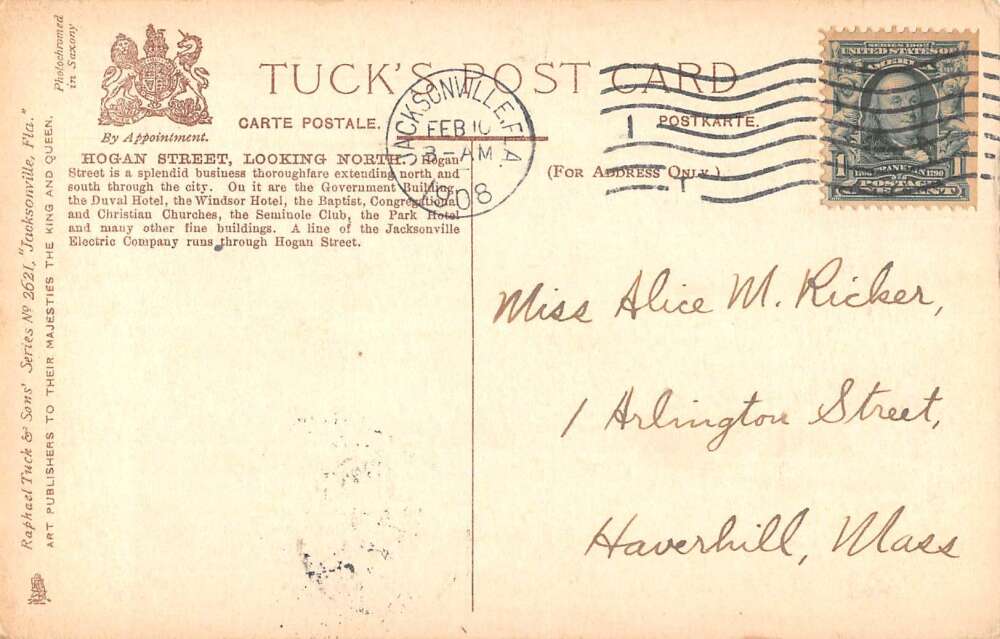 Photochromed
in Saxony
By Appointment.
TUCK'S POST CARD
CARTE POSTALE.
POSTKARTE.
(FOR ADDRESS ONLY.)
HOGAN STREET, LOOKING NORTH. Hogan
Street is a splendid business thoroughfare extending north and
south through the city. On it are the Government Building,
the Duval Hotel, the Windsor Hotel, the Baptist, Congregational
and Christian Churches, the Seminole Club, the Park Hotel
and many other fine buildings. A line of the Jacksonville
Electric Company runs through Hogan Street.
JACKSONVILLE, FLA.
FEB 10
8-AM
1908
1
SERIES 1902
UNITED STATES OF
AMERICA
1 FRANKLIN 1
1790
POSTAGE
ONE CENT
Miss Alice M. Ricker,
1 Arlington Street,
Haverhill, Mass
Raphael Tuck & Sons' Series No 2621, "Jacksonville, Fla."
ART PUBLISHERS TO THEIR MAJESTIES THE KING AND QUEEN.